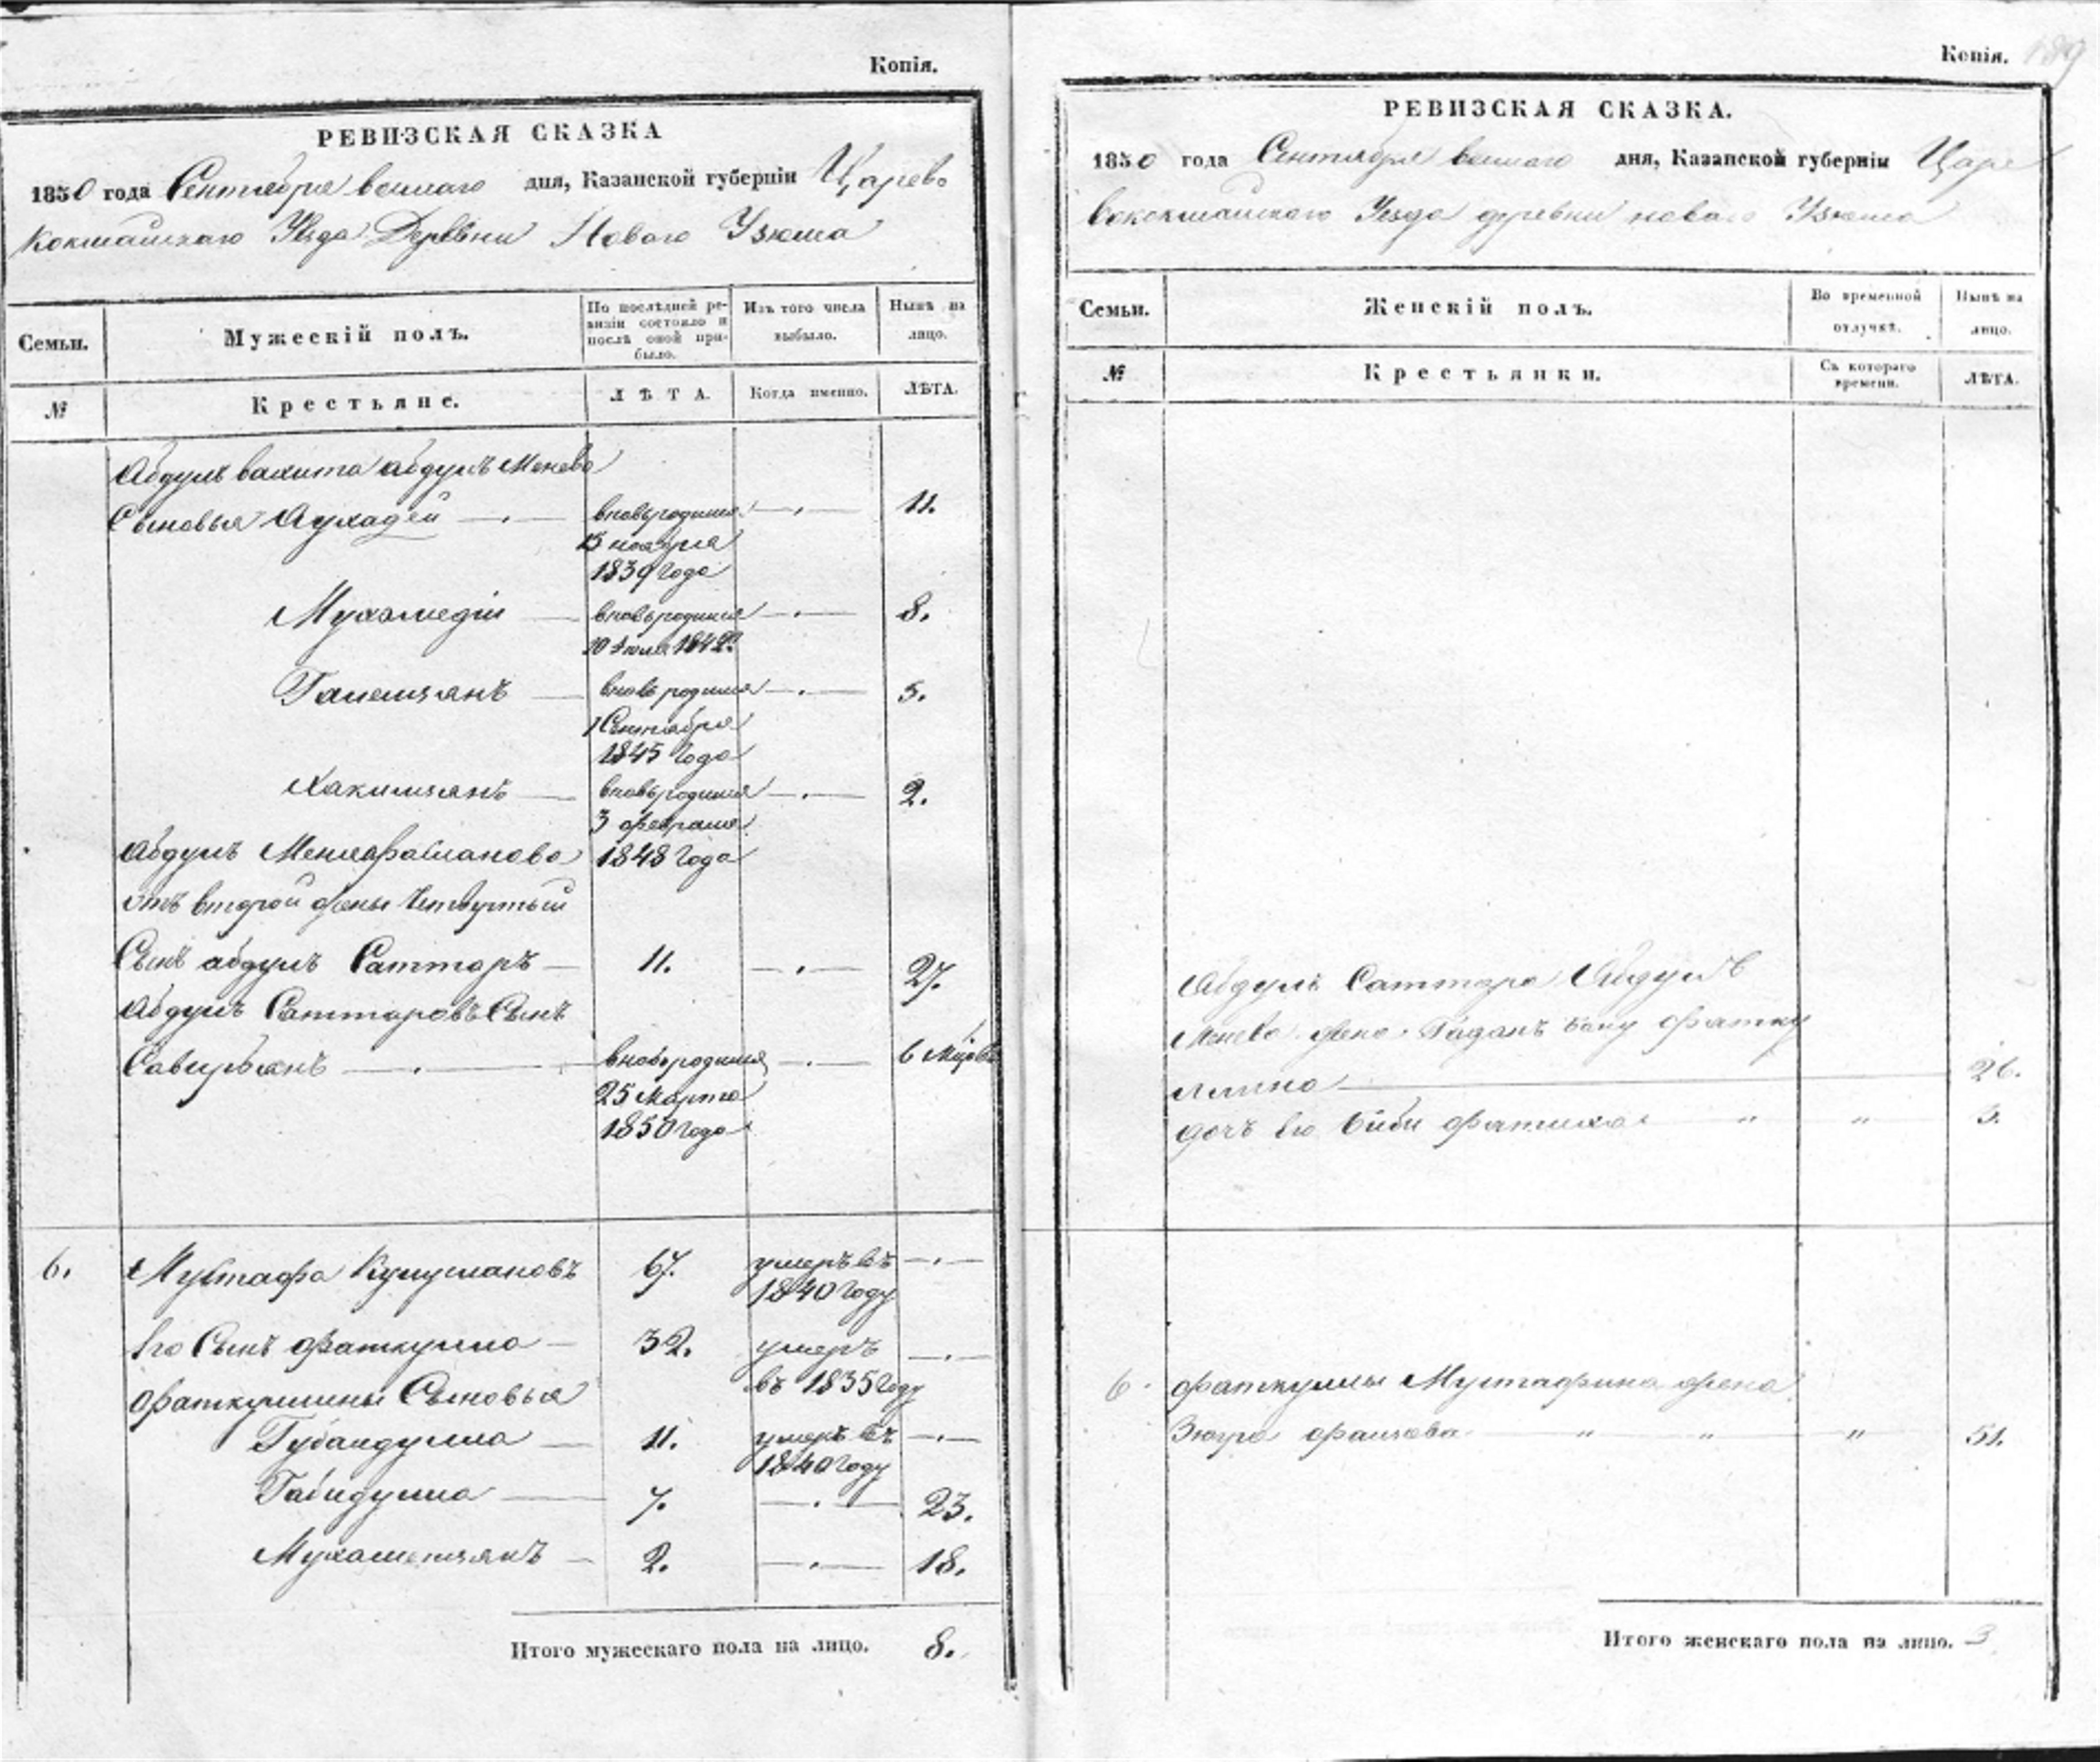 Копія.
РЕВИЗСКАЯ СКАЗКА
1850 года Сентября дня, Казанской губерніи Царево
кокшайскаго Уѣзда Деревни Новаго Узюма
Семьи.
Мужескій полъ.
По послѣдней ре-
визіи состояло и
послѣ оной при-
было.
Изъ того числа
выбыло.
Нынѣ на
лицо.
№
Крестьяне.
ЛѢТА.
Когда именно.
ЛѢТА.
Абдулъ вахита абдулъ Менева
Сыновья Аухадей вновьродился 11.
13 ноября
1839 года
Мухамедій вновьродился 8.
10 Іюля 1842
вновьродился 5.
1 Сентября
1845 года
Хакимзянъ вновьродился 2.
3 февраля
Абдулъ 1848 года
отъ второй жены четвертый
Сынъ абдулъ Саттаръ 11. 27.
Абдулъ Саттаровъ Сынъ
вновьродился 6
25 марта
1850 года
6. Мустафа 67. умеръ въ
1840 году
Его Сынъ Фаткулла 32. умеръ
въ 1835 году
Фаткуллины Сыновья
Губайдулла 11. умеръ въ
1840 году
Габидулла 7. 23.
Мухаметзянъ 2. 18.
Итого мужескаго пола на лицо. 8.
Копія. 189
РЕВИЗСКАЯ СКАЗКА.
1850 года Сентября дня, Казанской губерніи Царе
вококшайскаго Уезда деревни новаго Узюма
Семьи.
Женскій полъ.
Во временной
отлучкѣ.
Нынѣ на
лицо.
№
Крестьянки.
Съ котораго
времени.
ЛѢТА.
Абдулъ Саттара Абдулъ
Менева жена Бану Фатку
ллина 26.
дочь его Биби Фатиха " " 3.
6. Фаткуллы Мустафина жена
Зюгра " " " 51.
Итого женскаго пола на лицо. 3